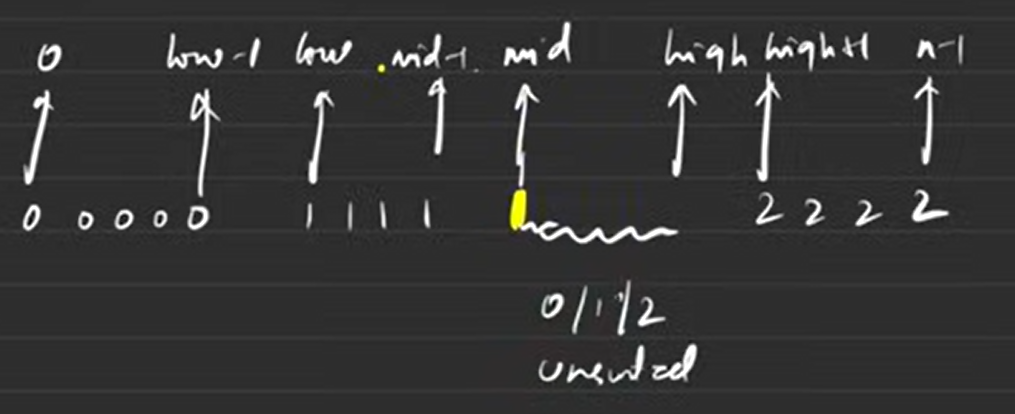 0 low-1 low mid-1 mid high high+1 n-1
0 0 0 0 0 1 1 1 1 2 2 2 2
0/1/2
unsorted